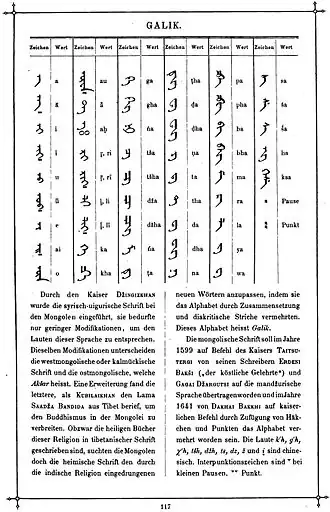 GALIK.
Zeichen Wert Zeichen Wert Zeichen Wert Zeichen Wert Zeichen Wert Zeichen Wert
a au ga ṭha pa sa
ā gha ḍa pha
i aḥ ṅa ḍha ba ša
ī ṛ, ri tša ṇa bha ha
u tšha ta ma ksa
ū dža tha ra Pause
e džha da la Punkt
ai ka ńa dha ya
o kha ṭa na wa
Durch den Kaiser Džingizkhan
wurde die syrisch-uigurische Schrift bei
den Mongolen eingeführt, sie bedurfte
nur geringer Modifikationen, um den
Lauten dieser Sprache zu entsprechen.
Dieselben Modifikationen unterscheiden
die westmongolische oder kalmükische
Schrift und die ostmongolische, welche
Akšar heisst. Eine Erweiterung fand die
letztere, als Kubilaikhan den Lama
Saadža Bandida aus Tibet berief, um
den Buddhismus in der Mongolei zu
verbreiten. Obzwar die heiligen Bücher
dieser Religion in tibetanischer Schrift
geschrieben sind, suchten die Mongolen
doch die heimische Schrift den durch
die indische Religion eingedrungenen
neuen Wörtern anzupassen, indem sie
das Alphabet durch Zusammensetzung
und diakritische Striche vermehrten.
Dieses Alphabet heisst Galik.
Die mongolische Schrift soll im Jahre
1599 auf Befehl des Kaisers Taitsu-
tergi von seinen Schreibern Erdeni
Bakši („der köstliche Gelehrte“) und
Gagai Džargutsi auf die mandžurische
Sprache übertragen worden und im Jahre
1641 von Dakhai Bakhi auf kaiser-
lichen Befehl durch Zufügung von Häk-
chen und Punkten das Alphabet ver-
mehrt worden sein. Die Laute k'h, g'h,
χ'h, tšh, džh, ts, dz, ž und i sind chine-
sisch. Interpunktionszeichen sind bei
kleinen Pausen. Punkt.
117